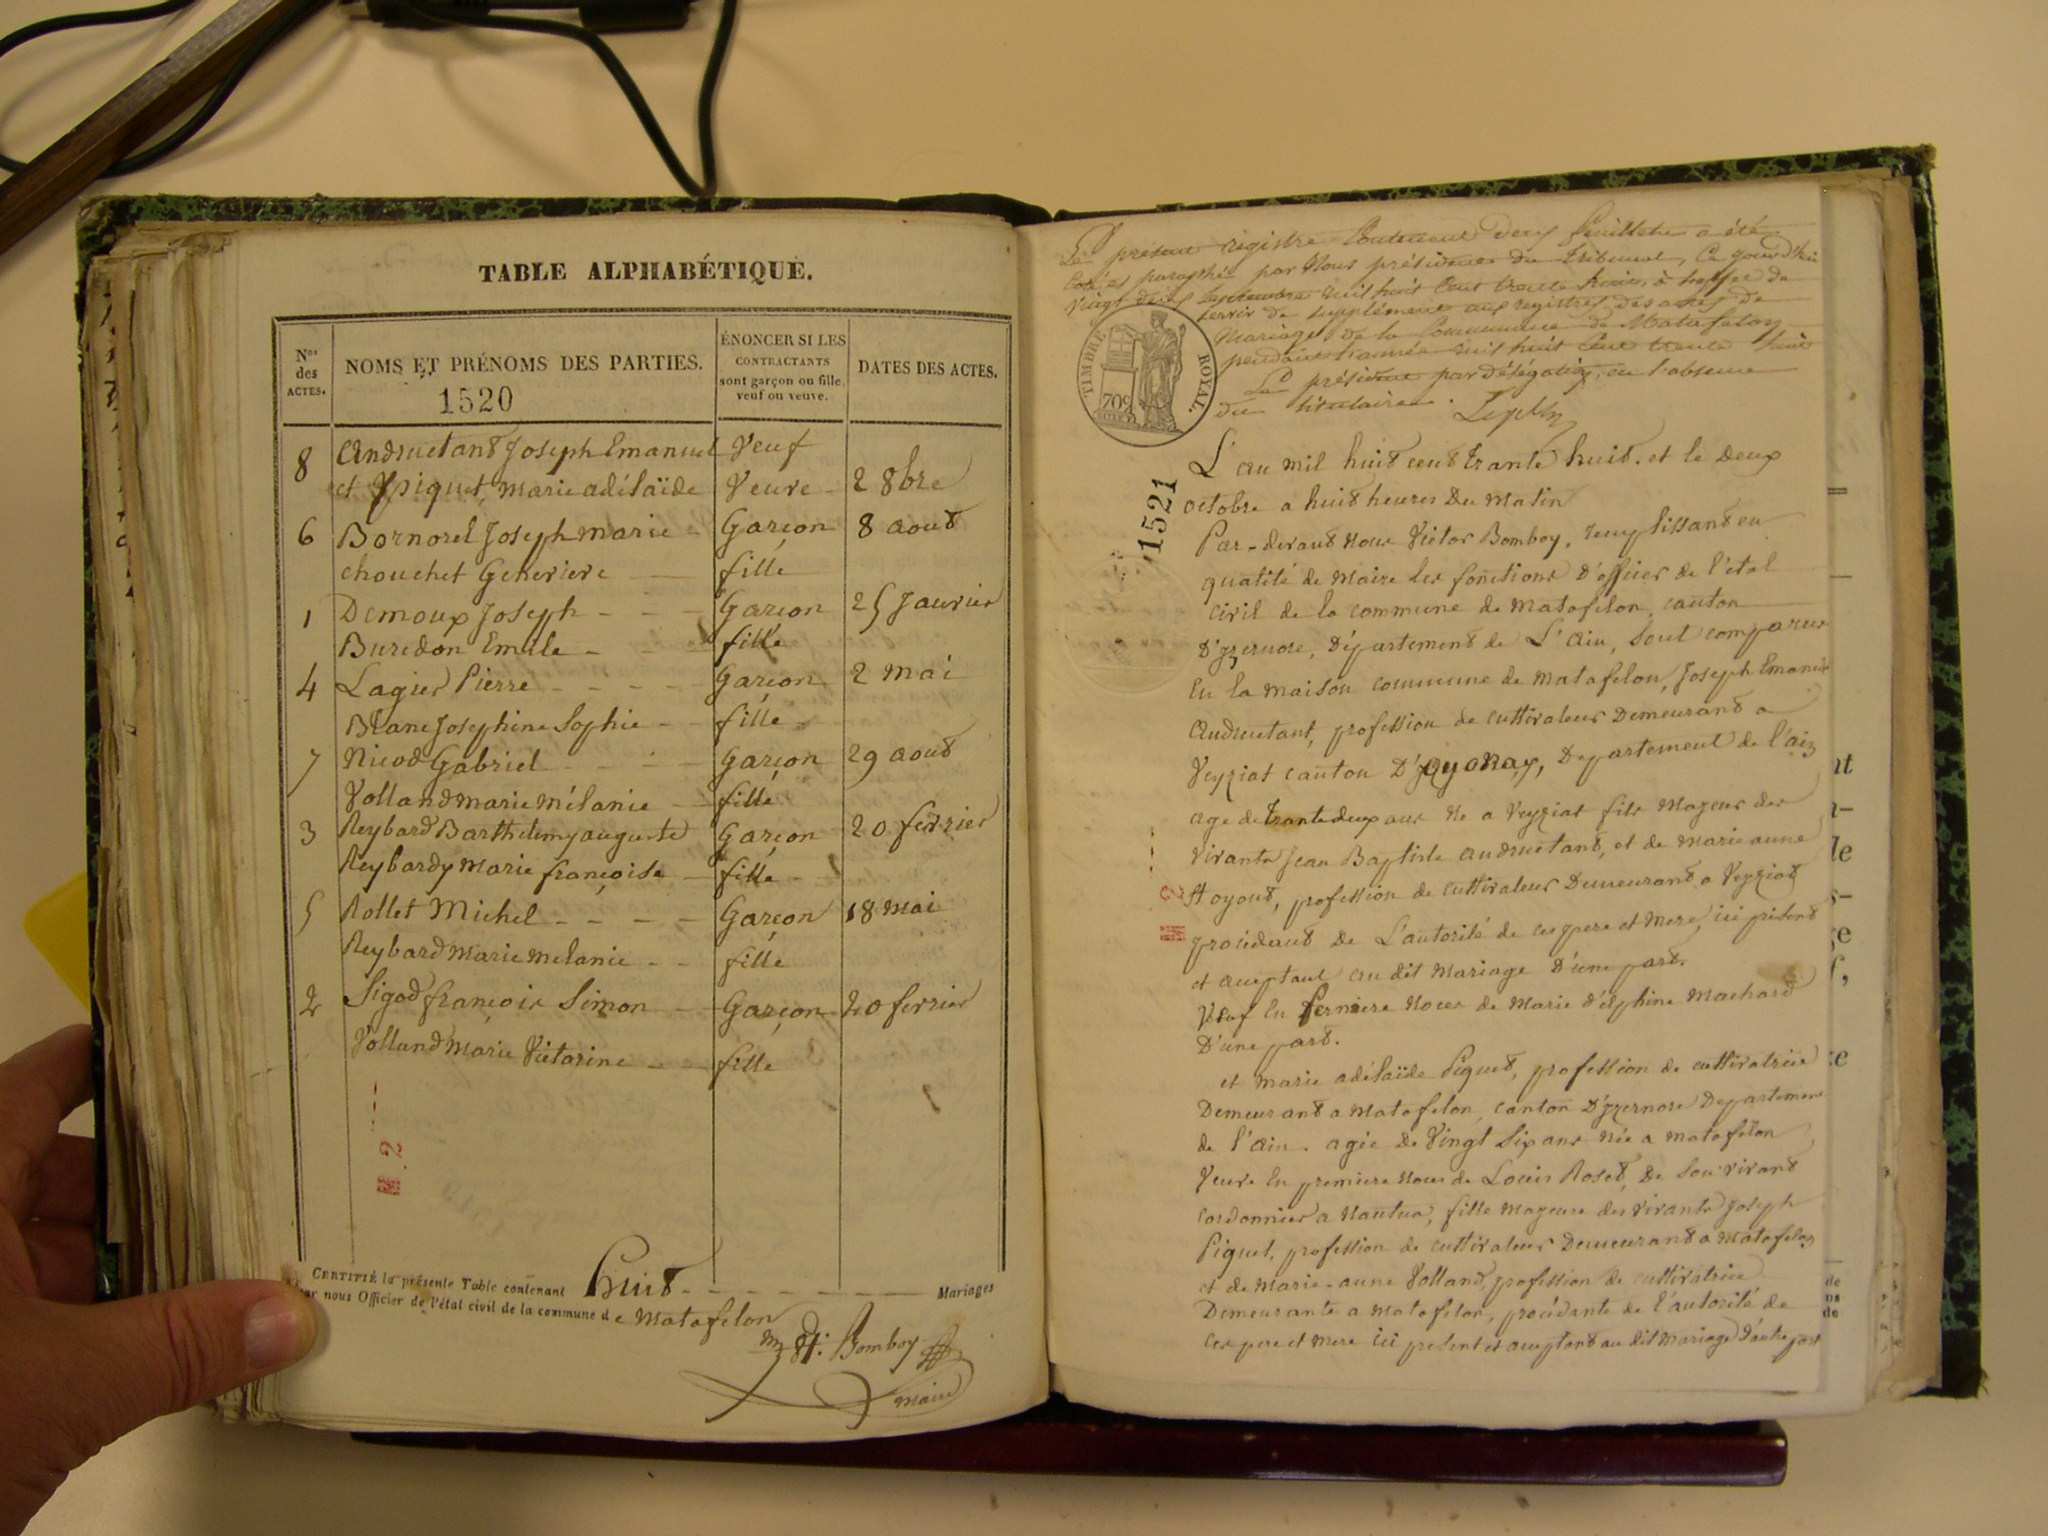 TABLE ALPHABÉTIQUE.
Nos des ACTES.
NOMS ET PRÉNOMS DES PARTIES.
ÉNONCER SI LES CONTRACTANTS sont garçon ou fille, veuf ou veuve.
DATES DES ACTES.
1520
8 Andruetant Joseph Emanuel Veuf
et Piquet, marie adélaïde Veuve 2 8bre
6 Bornorel Joseph marie Garçon 8 aout
chouchet Generieve fille
1 Demoux Joseph Garçon 25 Janvier
Buredon Emile fille
4 Lagier Pierre Garçon 2 mai
Blanc Josephine Sophie fille
7 Nicod Gabriel Garçon 29 aout
Volland marie mélanie fille
3 Reybard Barthelemy auguste Garçon 20 fevrier
Reybardy marie françoise fille
5 Rollet Michel Garçon 18 mai
Reybard marie melanie fille
2 Sigod françois Simon Garçon 20 fevrier
Volland marie Victorine fille
CERTIFIÉ la présente Table contenant huit Mariages
par nous Officier de l'état civil de la commune de Matafelon
Bomboy
maire
Le présent registre contenant deux feuillets a été
coté et paraphé par Nous président du Tribunal, Ce jourd'hui
vingt deux Septembre mil huit Cent trente huit, à l'effet de
servir de supplément aux registres des actes de
Mariages de la Commune de Matafelon
pendant l'année mil huit Cent trente huit
Le président par délégation, en l'absence
du titulaire.
TIMBRE ROYAL.
709
1521
L'an mil huit cent trante huit. et le deux
octobre a huit heures du matin
Par-devant nous Victor Bomboy, remplissant en
qualité de maire les fonctions d'officier de l'état
civil de la commune de matafelon, canton
d'yzernore, département de L'ain, sont comparus
En la maison commune de matafelon, Joseph Emanuel
Andruetant, profession de cultivateur demeurant a
Veyziat canton d'oyonax, Departement de l'ain
age de trante deux ans né a Veyziat fils majeur des
vivants Jean Baptiste andruetant, et de marie anne
profession de cultivateur demeurant a Veyziat
procédant de L'autorité de ces pere et mere, ici présent
et aceptant au dit mariage d'une part.
Veuf en premiere noces de marie d'elphine machard
D'une part.
et marie adélaïde Piquet, profession de cultivatrice
Demeurant a matafelon, canton d'yzernore Departement
de l'ain. agée de Vingt six ans née a matafelon
Veuve en premiere noces de Louis Roset, de son vivant
cordonnier a Nantua, fille majeure des vivants Joseph
Piquet, profession de cultivateur Demeurant a matafelon
et de marie-anne Volland, profession de cultivatrice
Demeurante a matafelon, procédante de l'autorité de
ces pere et mere ici présent et aceptant au dit mariage d'autre part